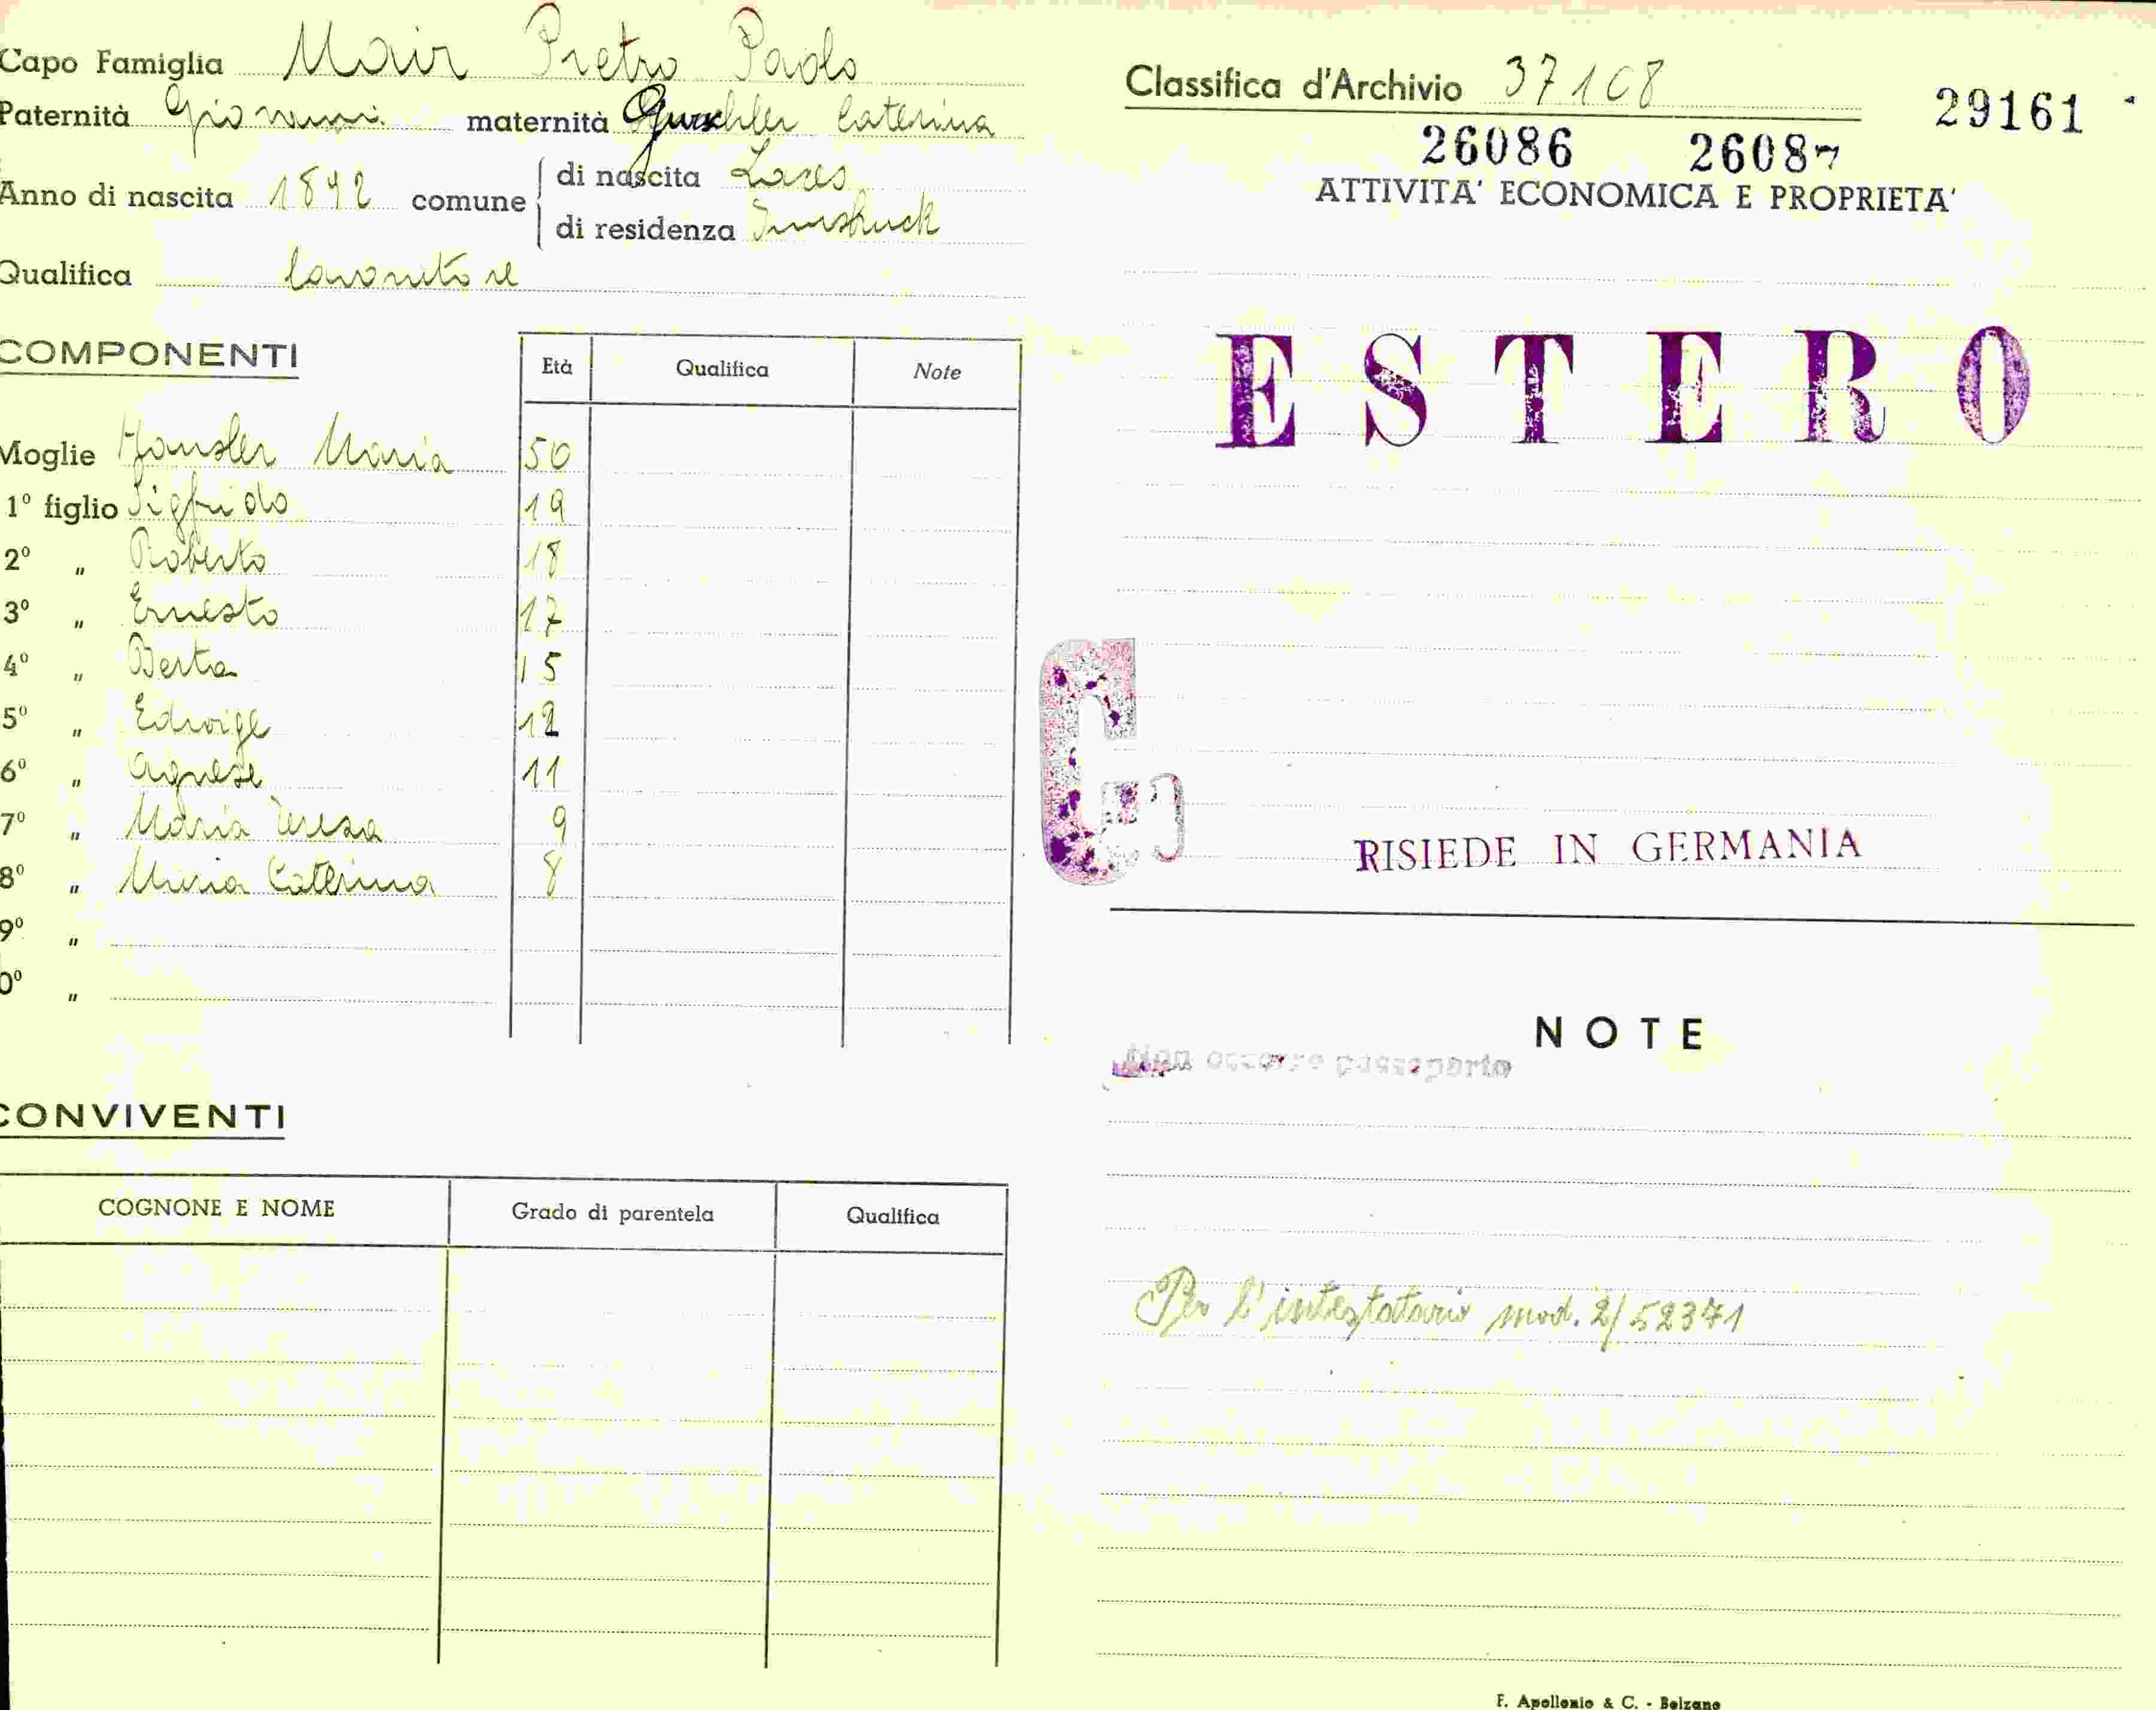 Capo Famiglia Mair Pietro Paolo
Paternità Giovanni maternità Gurschler Caterina
Anno di nascita 1892 comune di nascita Laces
di residenza Innsbruck
Qualifica lavoratore
COMPONENTI
Età Qualifica Note
Moglie Maria 50
1º figlio Sigfrido 19
2º „ Roberto 18
3º „ Ernesto 17
4º „ Berta 15
5º „ Edvige 12
6º „ Agnese 11
7º „ Maria Teresa 9
8º „ Maria Caterina 8
9º „
0º „
CONVIVENTI
COGNONE E NOME Grado di parentela Qualifica
Classifica d'Archivio 37108
29161
26086 26087
ATTIVITA' ECONOMICA E PROPRIETA'
ESTERO
G
RISIEDE IN GERMANIA
NOTE
Non occorre passaporto
Per l'intestatario mod. 2/52371
F. Apollonio & C. - Bolzano